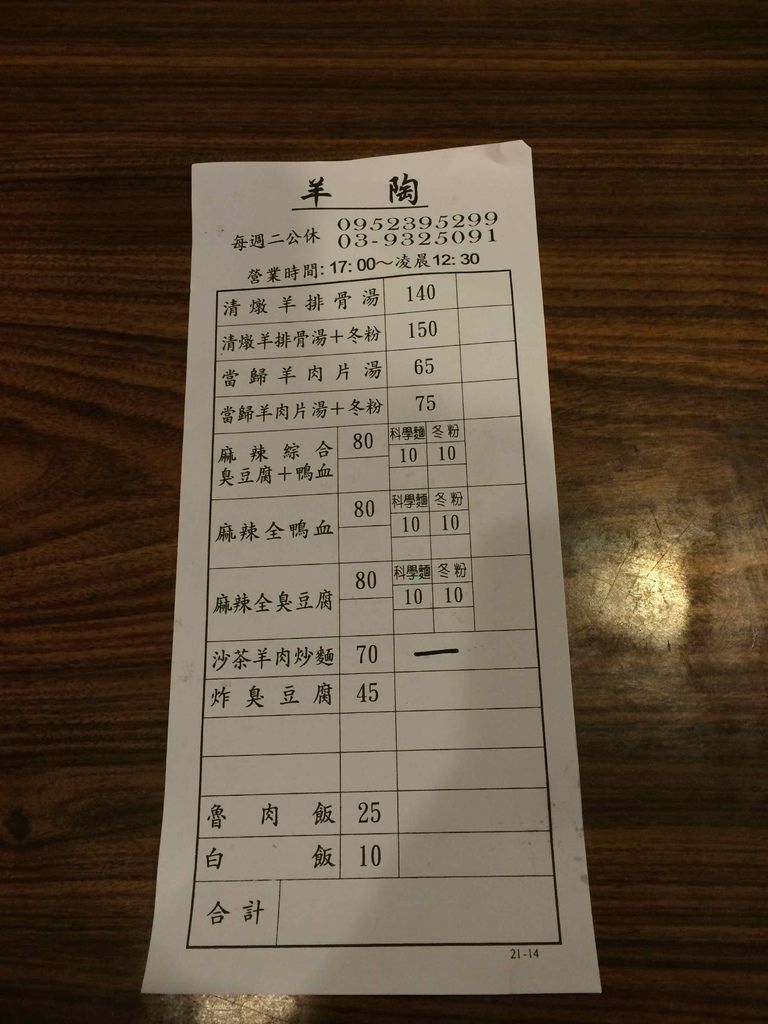 羊 陶
每週二公休 0952395299
03-9325091
營業時間:17:00～凌晨12:30
清燉羊排骨湯 140
清燉羊排骨湯＋冬粉 150
當歸羊肉片湯 65
當歸羊肉片湯＋冬粉 75
麻辣綜合 80 科學麵 冬粉
臭豆腐＋鴨血 10 10
麻辣全鴨血 80 科學麵 冬粉
10 10
麻辣全臭豆腐 80 科學麵 冬粉
10 10
沙茶羊肉炒麵 70 一
炸臭豆腐 45
魯肉飯 25
白飯 10
合計
21-14